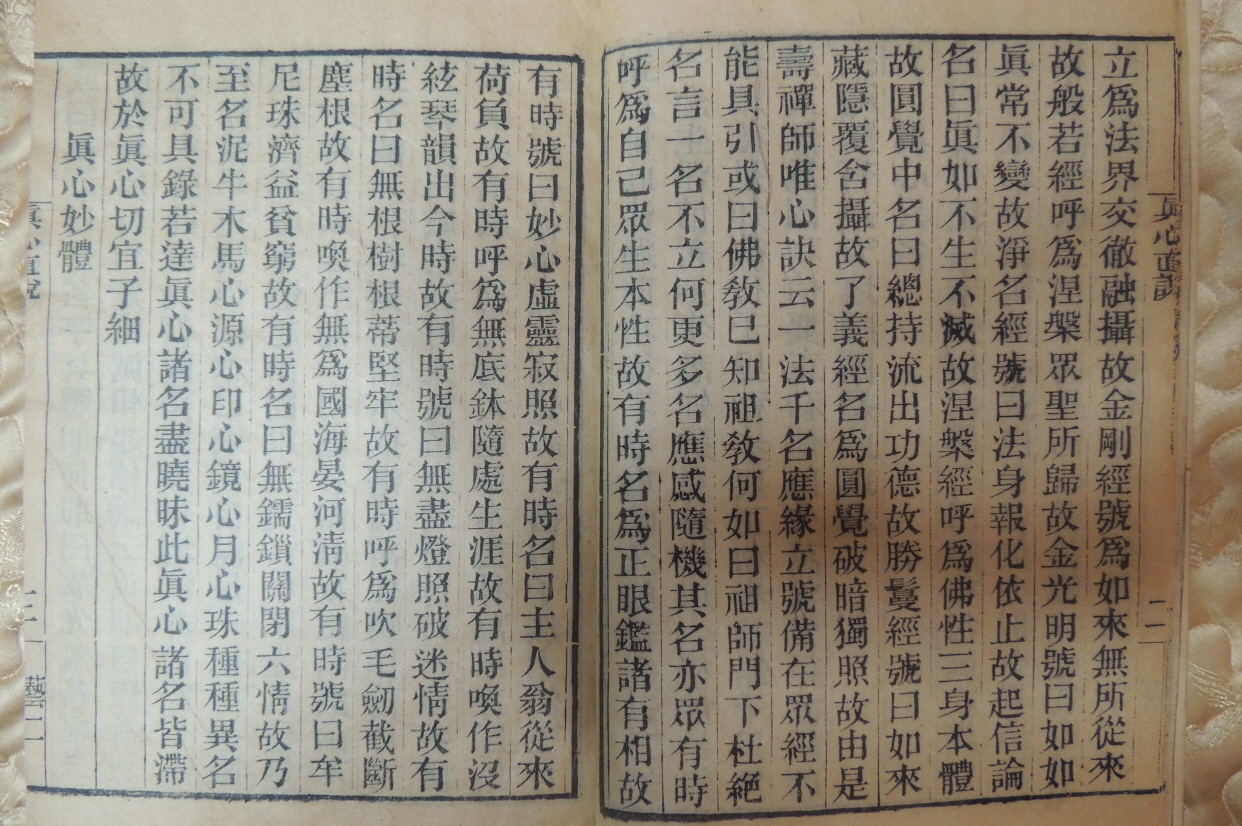 眞心直說
二
立爲法界交徹融攝故金剛經號爲如來無所從來
故般若經呼爲涅槃眾聖所歸故金光明號曰如如
眞常不變故淨名經號曰法身報化依止故起信論
名曰眞如不生不滅故涅槃經呼爲佛性三身本體
故圓覺中名曰總持流出功德故勝鬘經號曰如來
藏隱覆含攝故了義經名爲圓覺破暗獨照故由是
壽禪師唯心訣云一法千名應緣立號備在眾經不
能具引或曰佛敎已知祖敎何如曰祖師門下杜絕
名言一名不立何更多名應感隨機其名亦眾有時
呼爲自己眾生本性故有時名爲正眼鑑諸有相故
有時號曰妙心虛靈寂照故有時名曰主人翁從來
荷負故有時呼爲無底鉢隨處生涯故有時喚作沒
絃琴韻出今時故有時號曰無盡燈照破迷情故有
時名曰無根樹根蔕堅牢故有時呼爲吹毛劒截斷
塵根故有時喚作無爲國海晏河淸故有時號曰牟
尼珠濟益貧窮故有時名曰無鑐鎖關閉六情故乃
至名泥牛木馬心源心印心鏡心月心珠種種異名
不可具錄若達眞心諸名盡曉昧此眞心諸名皆滯
故於眞心切宜子細
眞心妙體
眞心直說
三
藝一